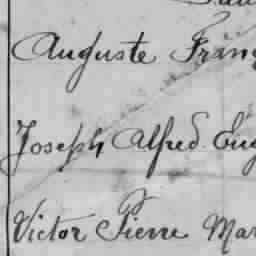 Auguste Franç
Joseph Alfred Eug
Victor Pierre Mar